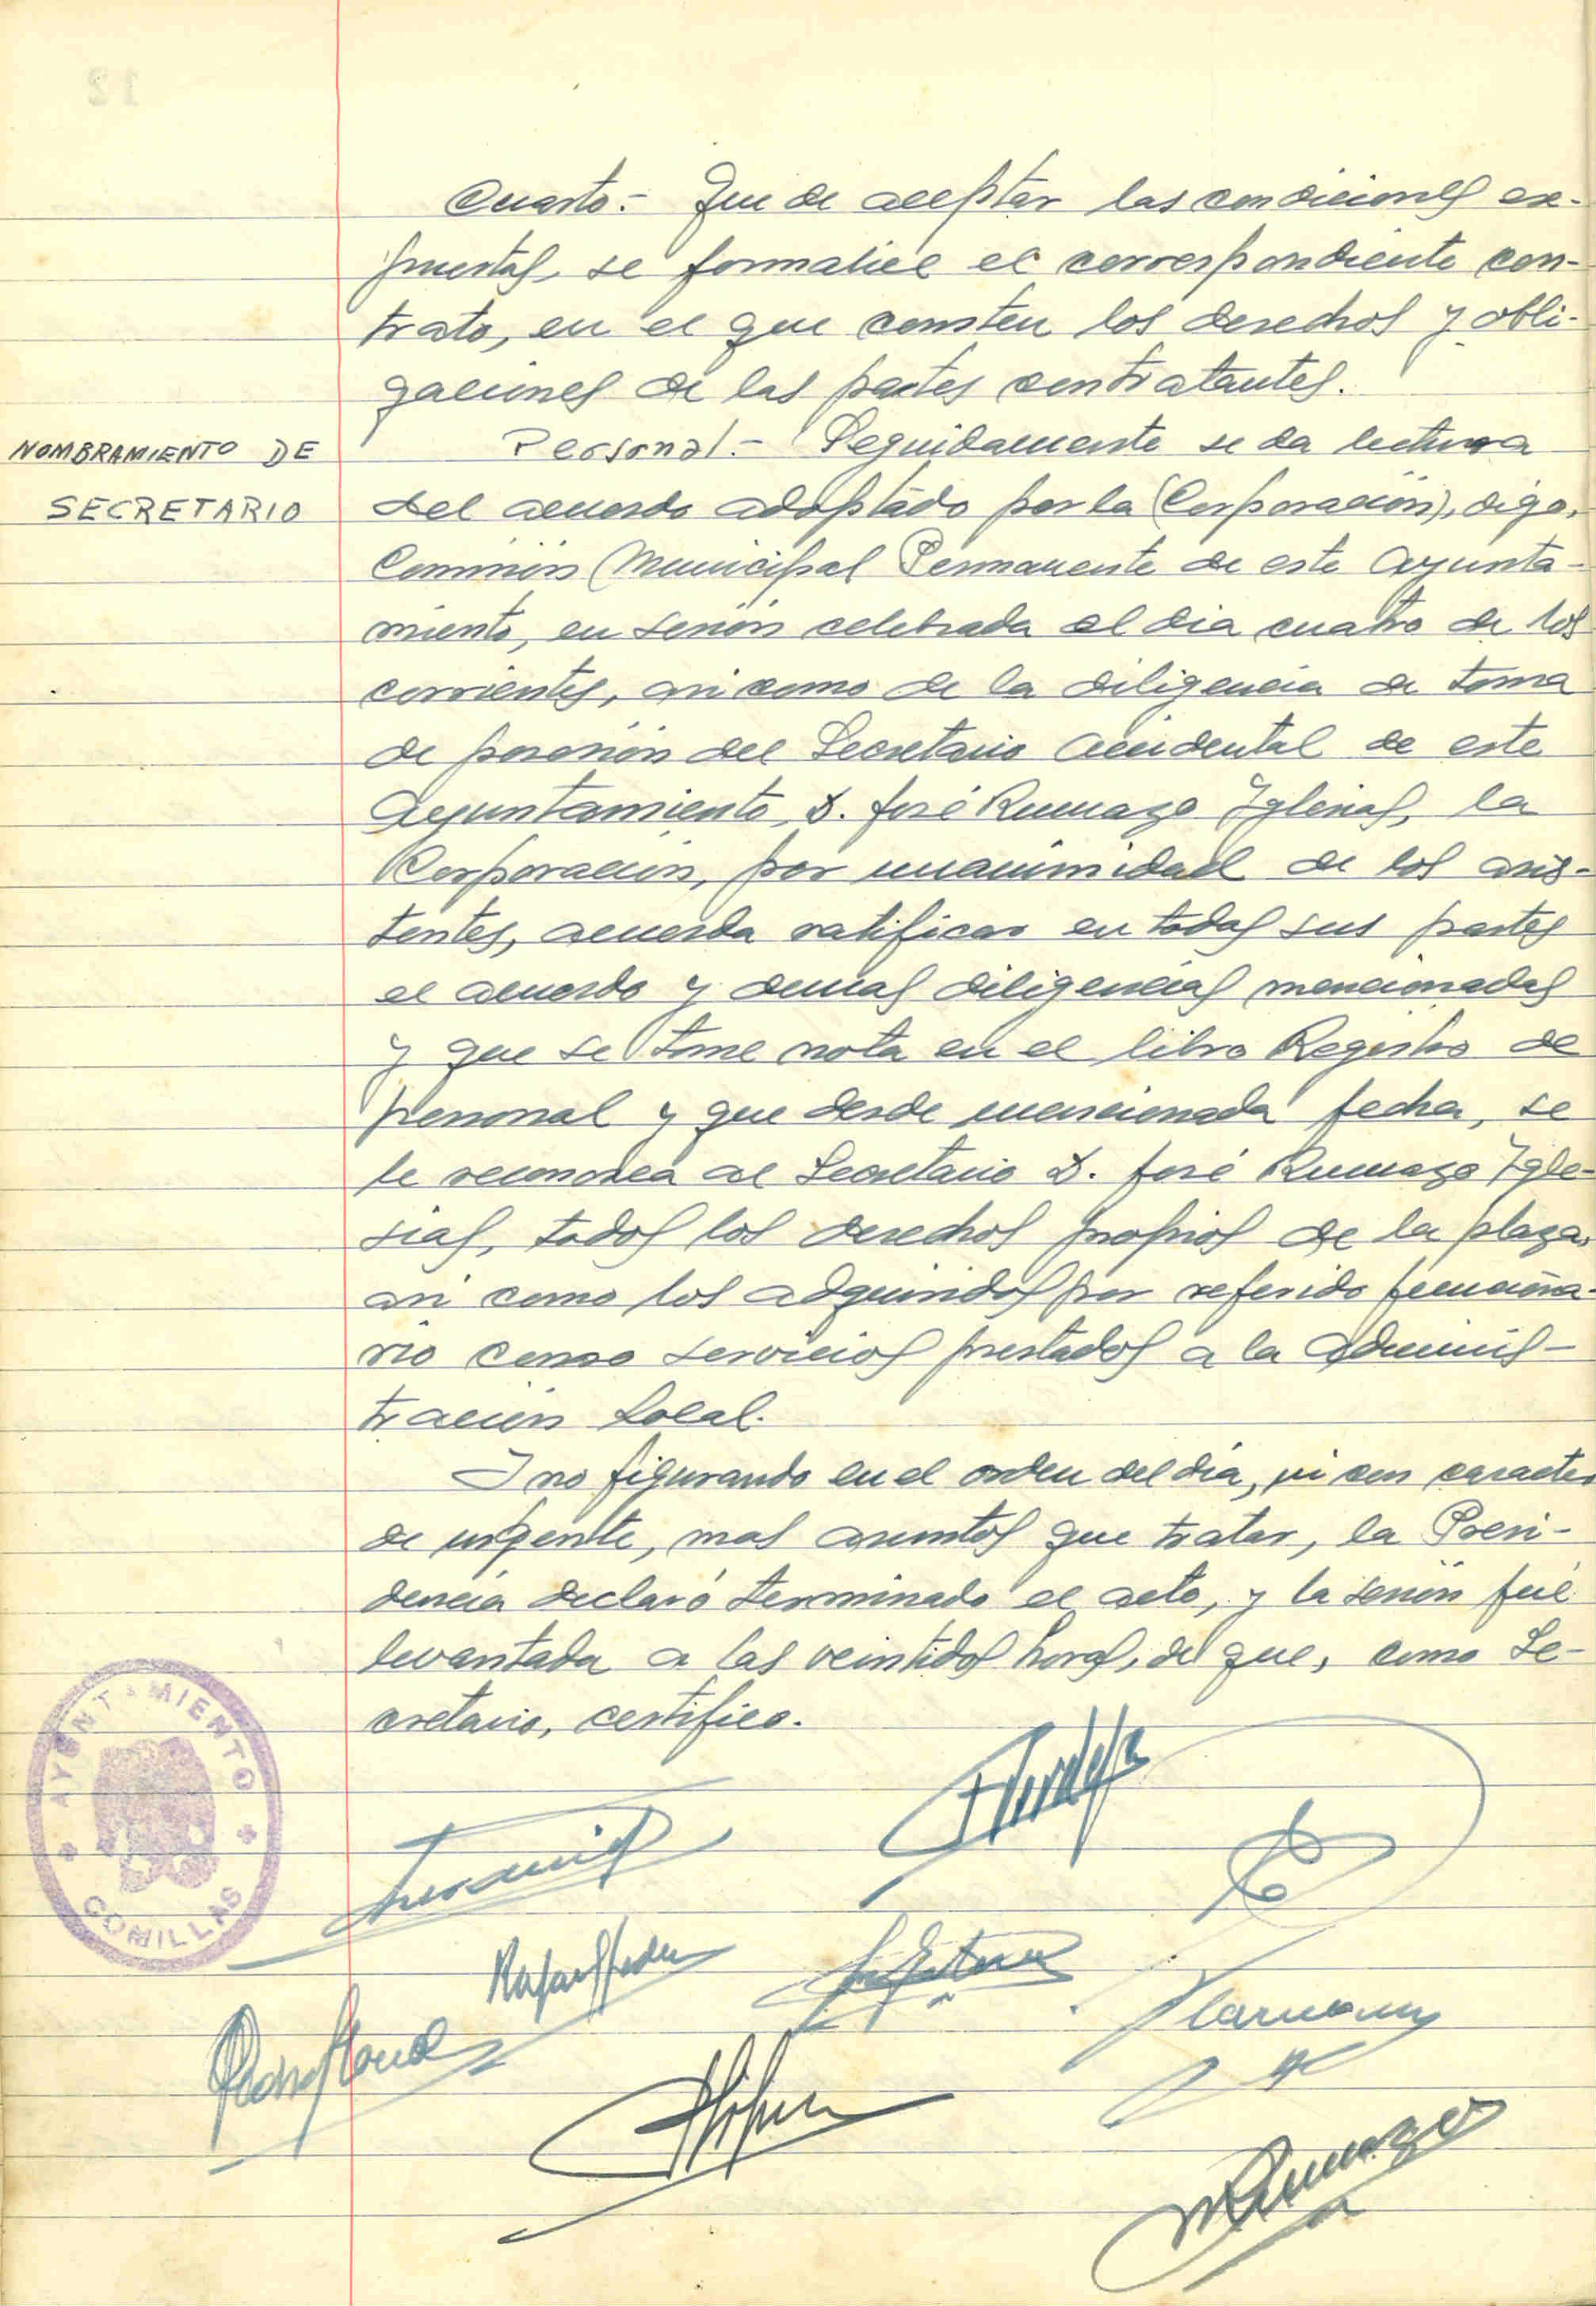 Cuarto.- Que de aceptar las condiciones ex-
puestas, se formalice el correspondiente con-
trato, en el que consten los derechos y obli-
gaciones de las partes contratantes.
NOMBRAMIENTO DE
SECRETARIO
Personal.- Seguidamente se da lectura
del acuerdo adoptado por la Corporación, digo,
Comisión Municipal Permanente de este Ayunta-
miento, en sesión celebrada el dia cuatro de los
corrientes, asi como de la diligencia de toma
de posesión del Secretario Accidental de este
Ayuntamiento, D. José Rumazo Iglesias, la
Corporación, por unanimidad de los asis-
tentes, acuerda ratificar en todas sus partes
el acuerdo y demas diligencias mencionadas
y que se tome nota en el libro Registro de
personal y que desde mencionada fecha, se
le reconozca al Secretario D. José Rumazo Igle-
sias, todos los derechos propios de la plaza,
asi como los adquiridos por referido funciona-
rio como servicios prestados a la Adminis-
tración Local.
Y no figurando en el orden del día, ni con caracter
de urgente, mas asuntos que tratar, la Presi-
dencia declaró terminado el acto, y la sesión fué
levantada a las veintidos horas, de que, como Se-
cretario, certifico.
AYUNTAMIENTO
COMILLAS
Rumazo
12